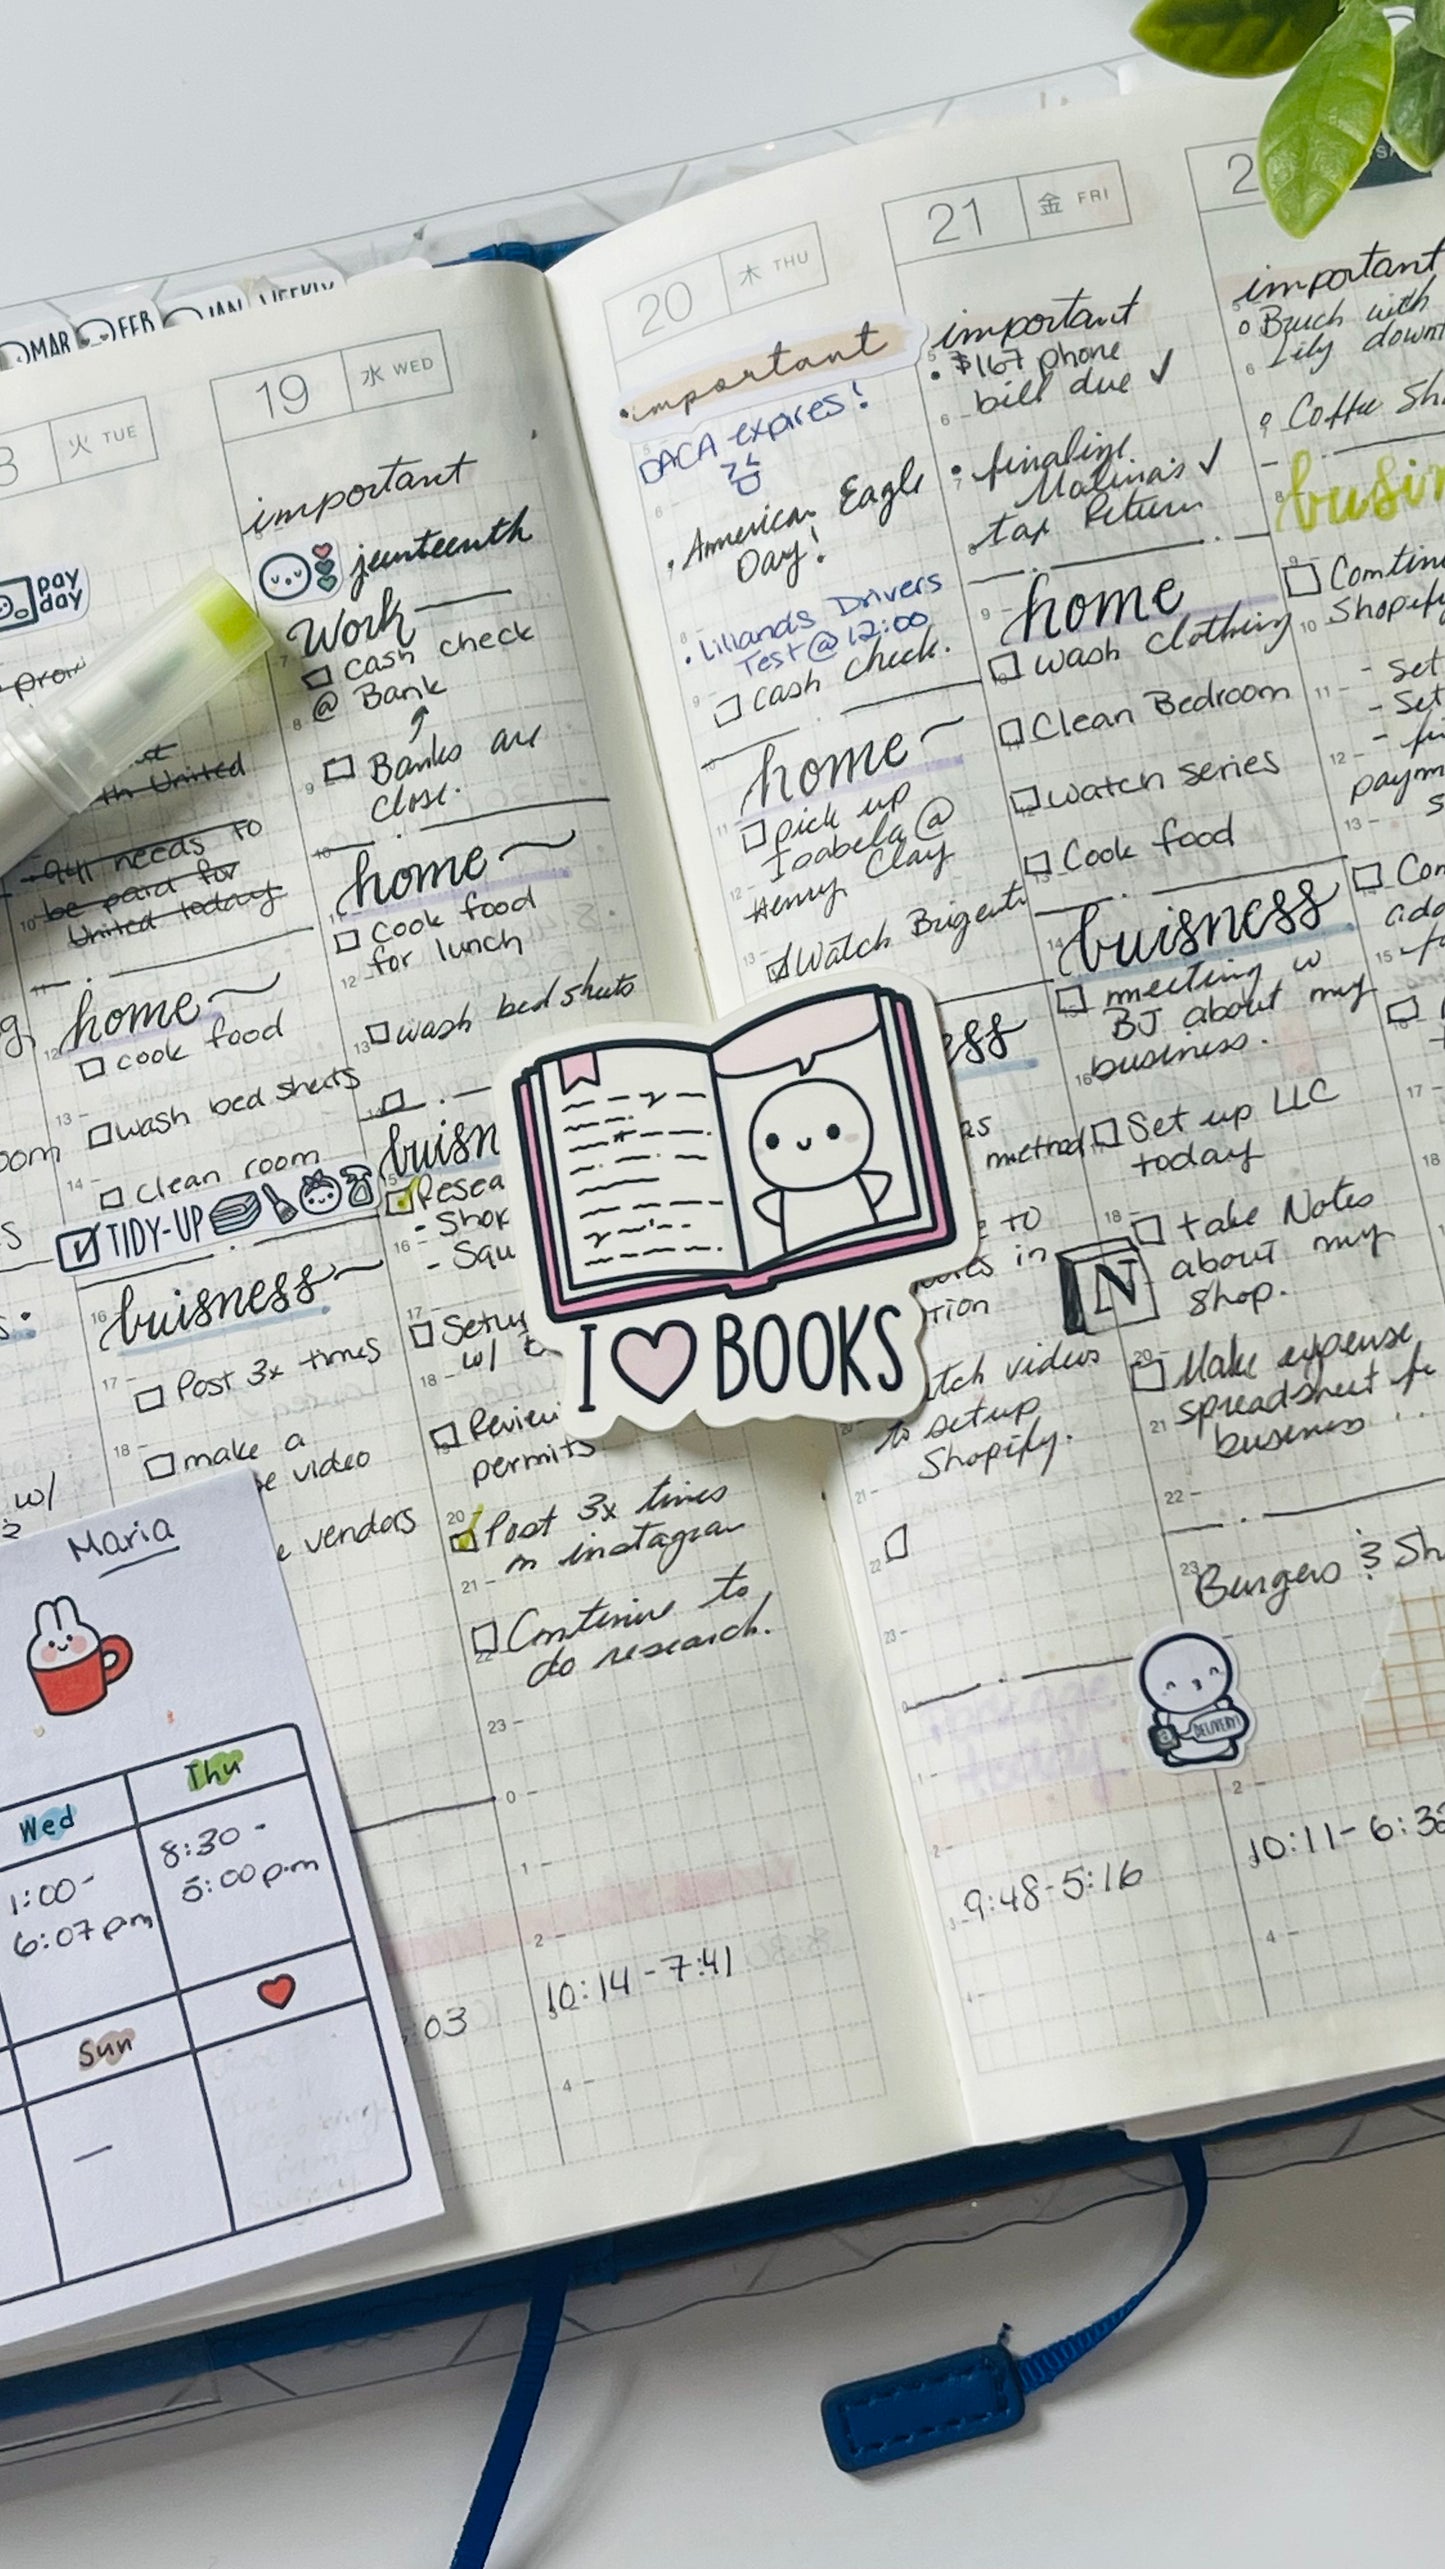 MAR
FEB
JAN
WEEKLY
火 TUE
pay
day
th United
941 needs to
be paid for
United today
home
cook food
wash bed sheets
clean room
TIDY-UP
buisness
Post 3x times
make a
video
vendors
w/
Maria
Wed
Thu
1:00-
6:07 pm
8:30 -
5:00 p.m
Sun
19
水 WED
important
Work
cash check
@ Bank
Banks are
close.
home
Cook food
for lunch
wash bed sheets
buisn
Resea
Setup
w/
Review
permits
Post 3x times
Continue to
do research.
23
0
1
2
10:14-7:41
4
03
I BOOKS
20
木 THU
important
DACA expires!
American Eagle
Day!
Liliands Drivers
Test @ 12:00
cash check.
home
pick up
Isabela @
Henry Clay
Watch
ess
method
to
in
tion
tch videos
to setup
Shopify.
21
22
23
1
2
9:48-5:16
21
金 FRI
important
$167 phone
bill due ✓
finalize
✓
tax Return
home
wash clothing
Clean Bedroom
Watch series
Cook food
buisness
meeting w
BJ about my
business.
Set up LLC
today
N
take Notes
about my
Shop.
Make expense
spreadsheet fo
business...
22
23
Burgers & Sh
DELIVERY!
2
10:11-6:3
4
2
important
with
Lily downt
Coffee Sh
busin
Contin
Shopify
- set
- Set
paym
Con